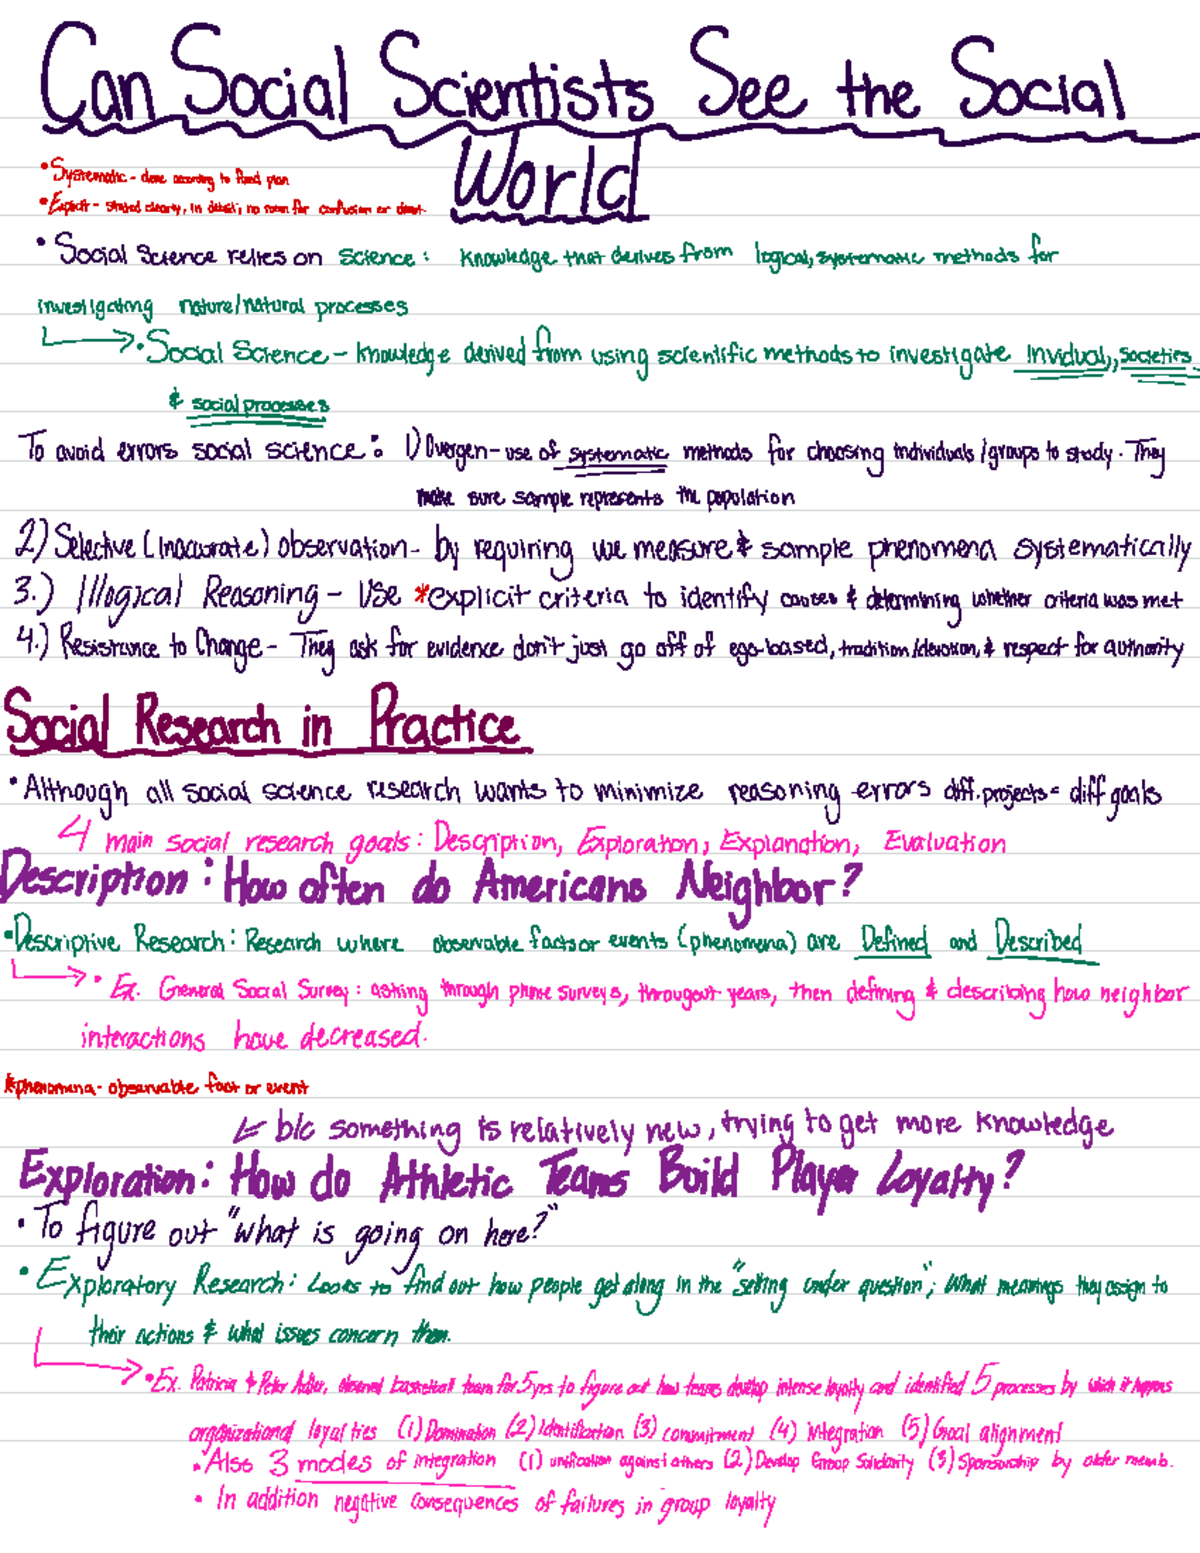 Can Social Scientists See the Social
World
• Systematic - done according to fixed plan
• Explicit - stated clearly, in detail; no room for confusion or doubt
• Social Science relies on science: knowledge that derives from logical, systematic methods for
investigating nature/natural processes
• Social Science - knowledge derived from using scientific methods to investigate Invidual, societies
& social processes
To avoid errors social science: 1) Overgen- use of systematic methods for choosing individuals/groups to study. They
make sure sample represents the population
2) Selective (Inaccurate) observation- by requiring we measure & sample phenomena systematically
3.) Illogical Reasoning - Use *explicit criteria to identify causes & determining whether criteria was met
4.) Resistance to Change - They ask for evidence don't just go off of ego-based, tradition/devotion, & respect for authority
Social Research in Practice
• Although all social science research wants to minimize reasoning errors diff. projects = diff goals
4 main social research goals: Description, Exploration, Explanation, Evaluation
Description: How often do Americans Neighbor?
• Descriptive Research: Research where observable facts or events (phenomena) are Defined and Described
• Ex. General Social Survey: asking through phone surveys, througout years, then defining & describing how neighbor
interactions have decreased.
*phenomena- observable fact or event
b/c something is relatively new, trying to get more knowledge
Exploration: How do Athletic Teams Build Player Loyalty?
• To figure out "what is going on here?"
• Exploratory Research: Looks to find out how people get along in the "setting under question"; What meanings they assign to
their actions & what issues concern them.
• Ex. Patricia & Peter Adler, observed basketball team for 5 yrs to figure out how teams develop intense loyalty and identified 5 processes by which it happens
organizational loyalties (1) Domination (2) Identification (3) commitment (4) integration (5) Goal alignment
• Also 3 modes of integration (1) unification against others (2) Develop Group Solidarity (3) Sponsorship by older memb.
• In addition negative consequences of failures in group loyalty